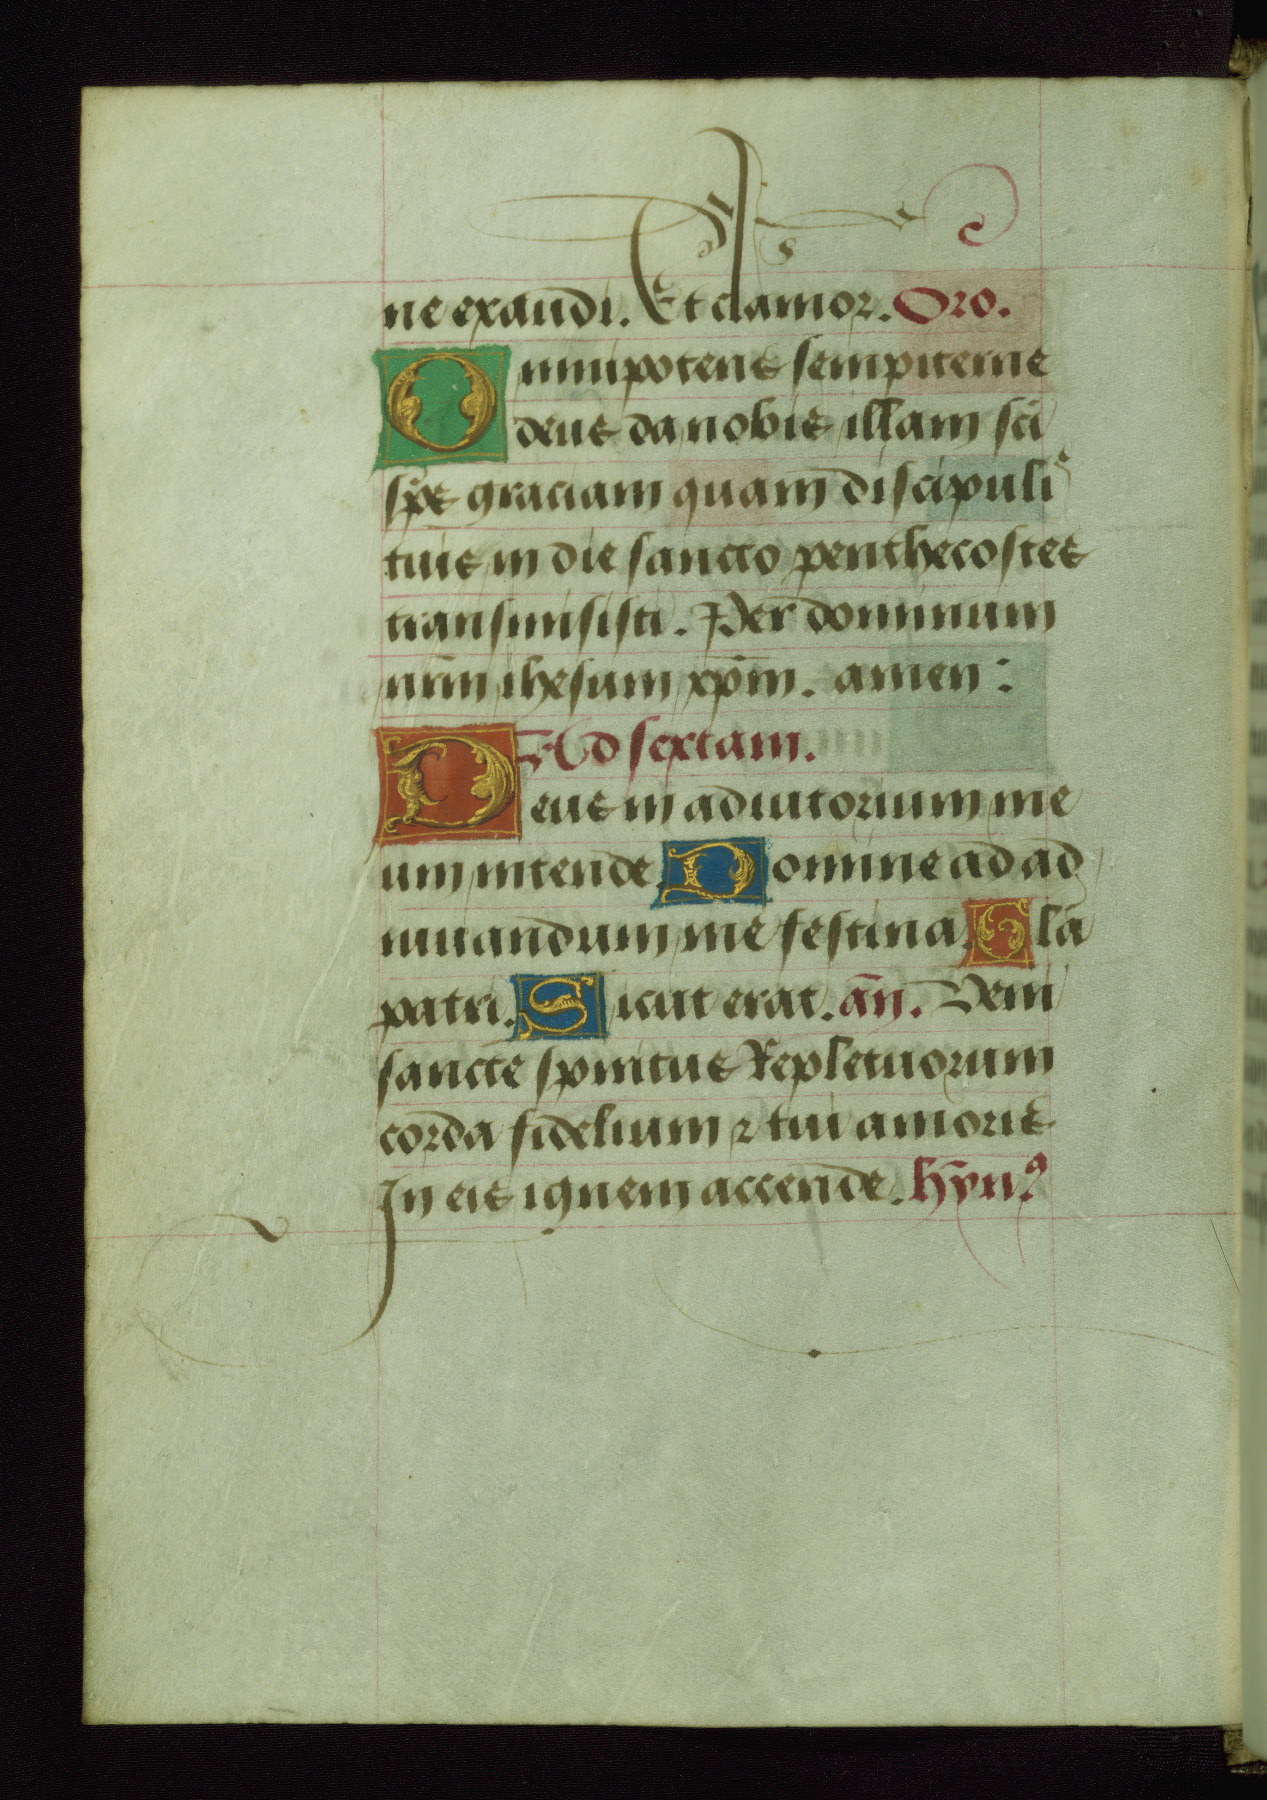 ne exaudi. Et clamor. Oro.
Omnipotens sempiterne
deus da nobis illam sc̄i
sp̄s graciam quam discipuli⁹
tuis in die sancto penthecostes
transmisisti. Per dominum
nr̄m ihesum xp̄m. amen :
Ad sextam.
Deus in adiutorium me
um intende. Domine ad ad
iuuandum me festina. Glā
patri. Sicut erat. an̄. Veni
sancte spiritus Reple tuorum
corda fidelium ⁊ tui amoris
In eis ignem accende. hȳn⁹.